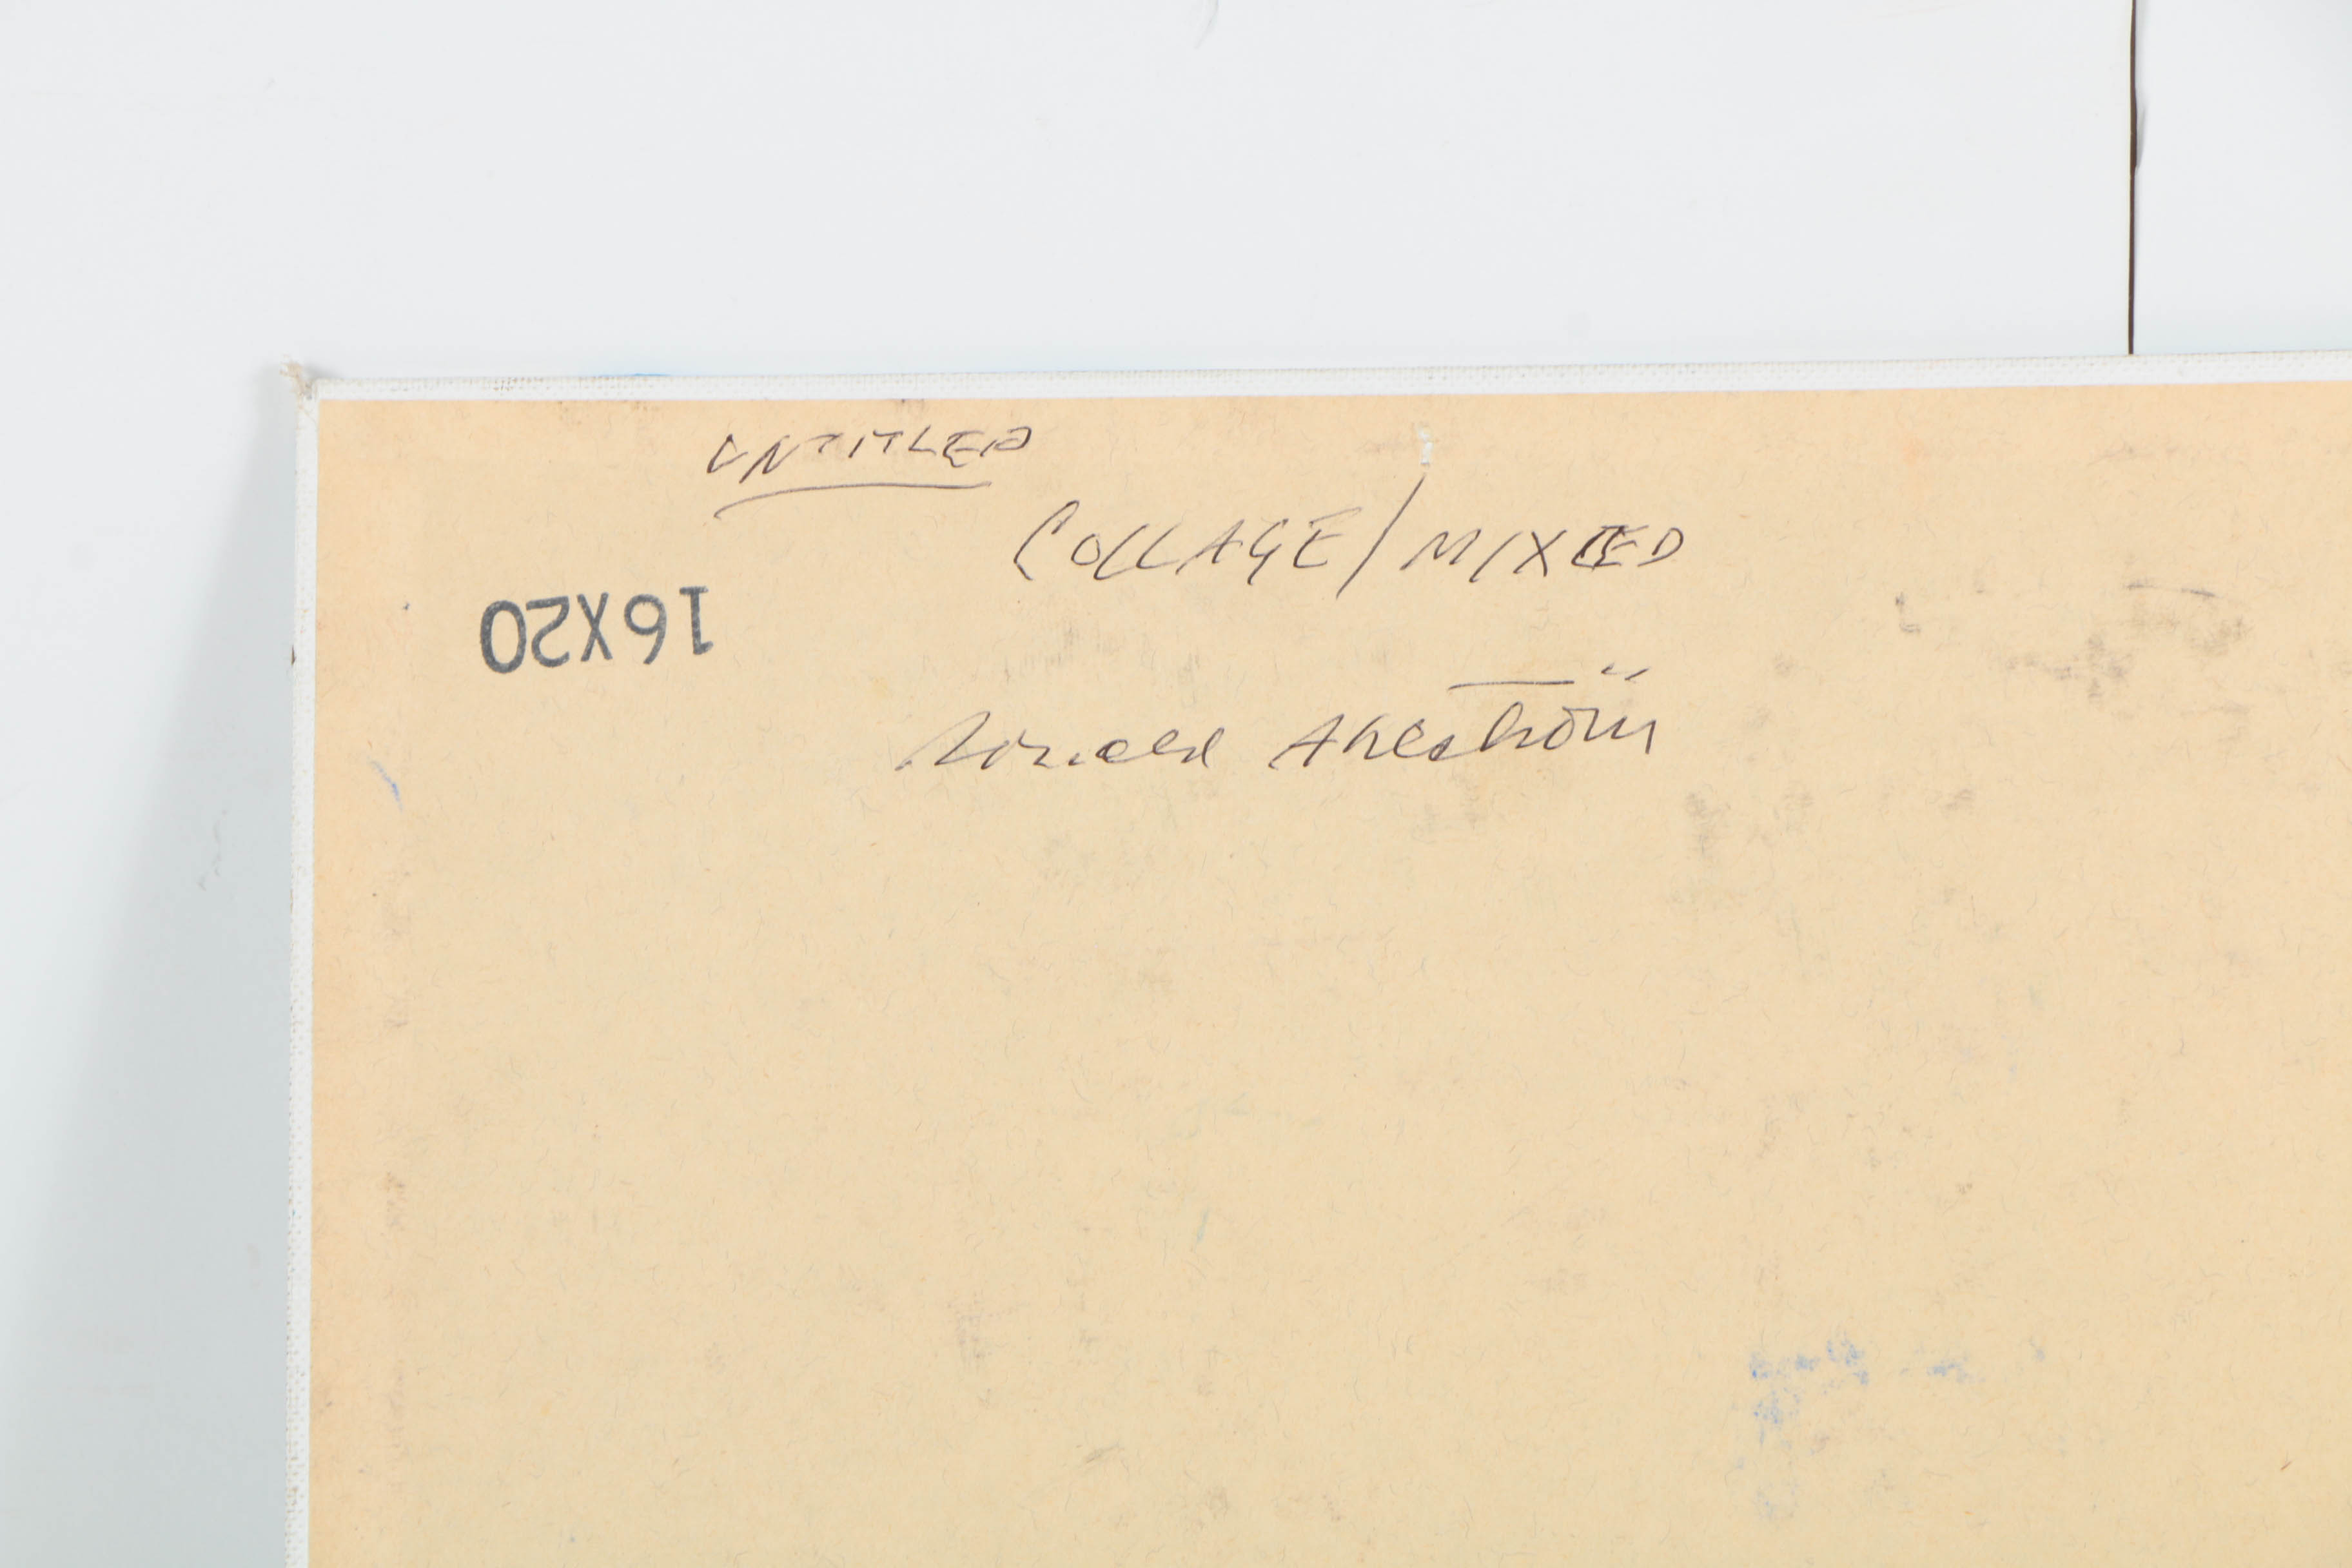 UNTITLED
COLLAGE/MIXED
16X20
Ronald Ahlström